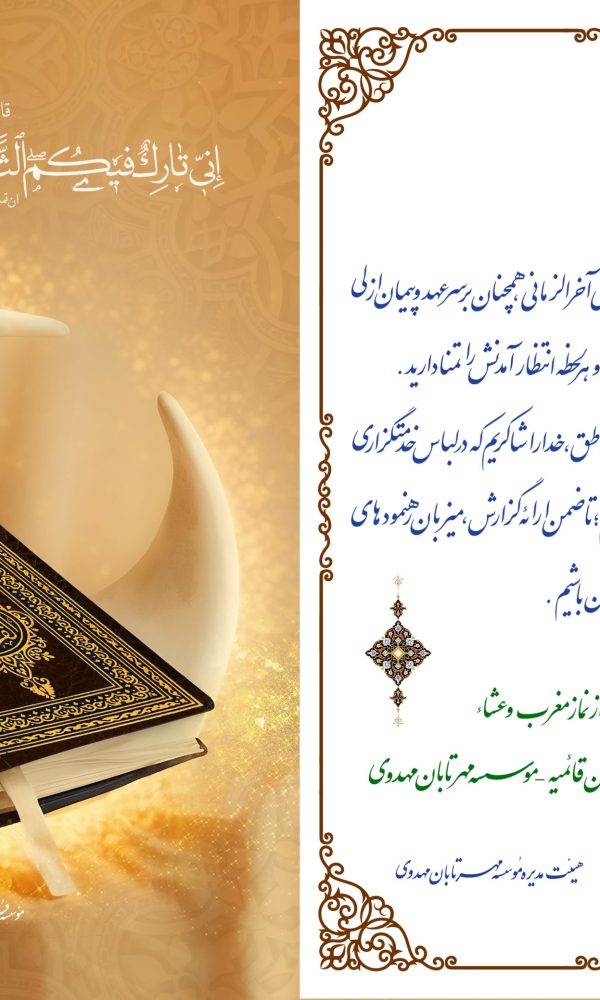 إِنِّي تَارِكٌ فِيكُمُ
آخرالزمانی، همچنان بر سر عهد و پیمان ازلی
و هر لحظه انتظار آمدنش را تمنا دارید.
خدا را شاکریم که در لباس خدمتگزاری
تا ضمن ارائه گزارش، میزبان رهنمودهای
باشیم.
نماز مغرب و عشاء
قائمیه - موسسه مهر تابان مهدوی
هیئت مدیره موسسه مهر تابان مهدوی